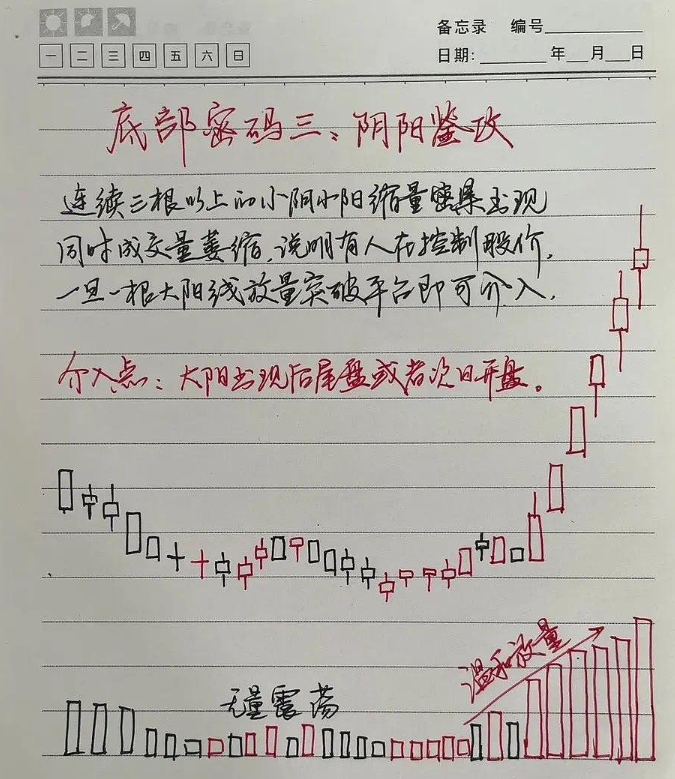 备忘录 编号
一 二 三 四 五 六 日
日期: 年 月 日
底部密码三、阴阳鉴攻
连续三根以上的小阴小阳缩量密集出现
同时成交量萎缩，说明有人在控制股价，
一旦一根大阳线放量突破平台即可介入．
介入点：大阳出现后尾盘或者次日开盘。
温和放量
无量震荡